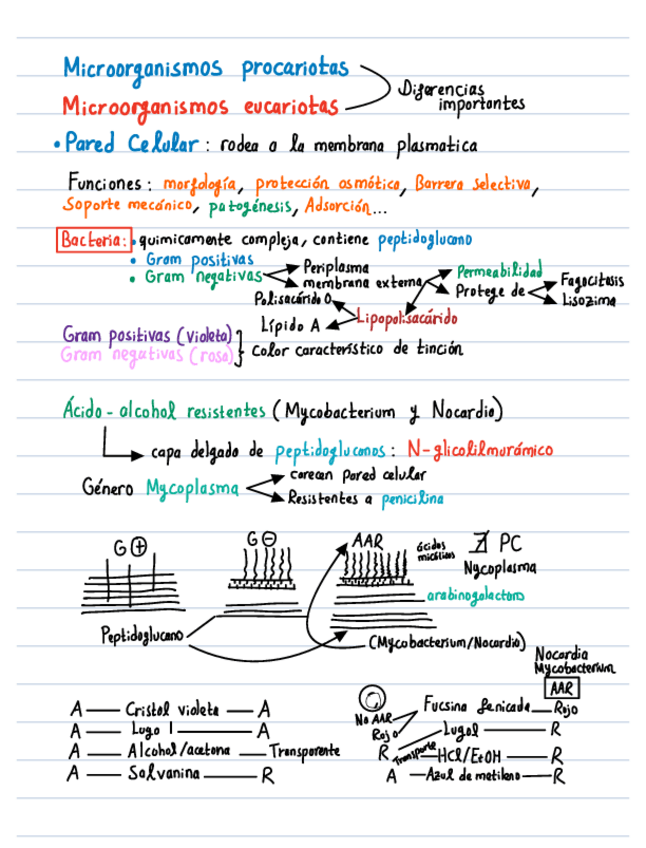 Microorganismos procariotas
Microorganismos eucariotas
Diferencias
importantes
• Pared Celular : rodea a la membrana plasmatica
Funciones : morfología, protección osmótica, Barrera selectiva,
Soporte mecánico, patogénesis, Adsorción...
Bacteria: • quimicamente compleja, contiene peptidoglucano
• Gram positivas
• Gram negativas
Periplasma
membrana externa
Permeabilidad
Protege de
Fagocitosis
Lisozima
Polisacárido O
Lípido A
Lipopolisacárido
Gram positivas (violeta)
Gram negativas (rosa)
Color característico de tinción
Ácido - alcohol resistentes (Mycobacterium y Nocardia)
capa delgada de peptidoglucanos : N-glicolilmurámico
Género Mycoplasma
carecen pared celular
Resistentes a penicilina
G +
G -
AAR
ácidos
micólicos
∄ PC
Nycoplasma
arabinogalactano
Peptidoglucano
(Mycobacterium/Nocardia)
Nocardia
Mycobacterium
AAR
A — Cristal violeta — A
A — Lugol — A
A — Alcohol/acetona — Transparente
A — Safranina — R
No AAR
Rojo
Fucsina fenicada — Rojo
Lugol — R
R Transparte — HCl/EtOH — R
A — Azul de metileno — R